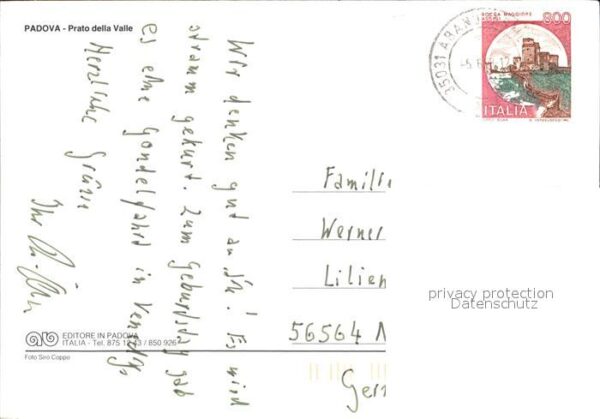 PADOVA - Prato della Valle
Wir denken gut an Sie! Es wird
stramm gekurt. Zum Geburtstag gab
es eine Gondelfahrt in Venedig.
Herzliche Grüsse
Ihr
ROCCA MAGGIORE
ASSISI
800
ITALIA
35031 ABANO
Famili
Werner
Lilien
56564 N
Ger
privacy protection
Datenschutz
EDITORE IN PADOVA
ITALIA - Tel. 875 12 43 / 850 926
Foto Siro Coppo